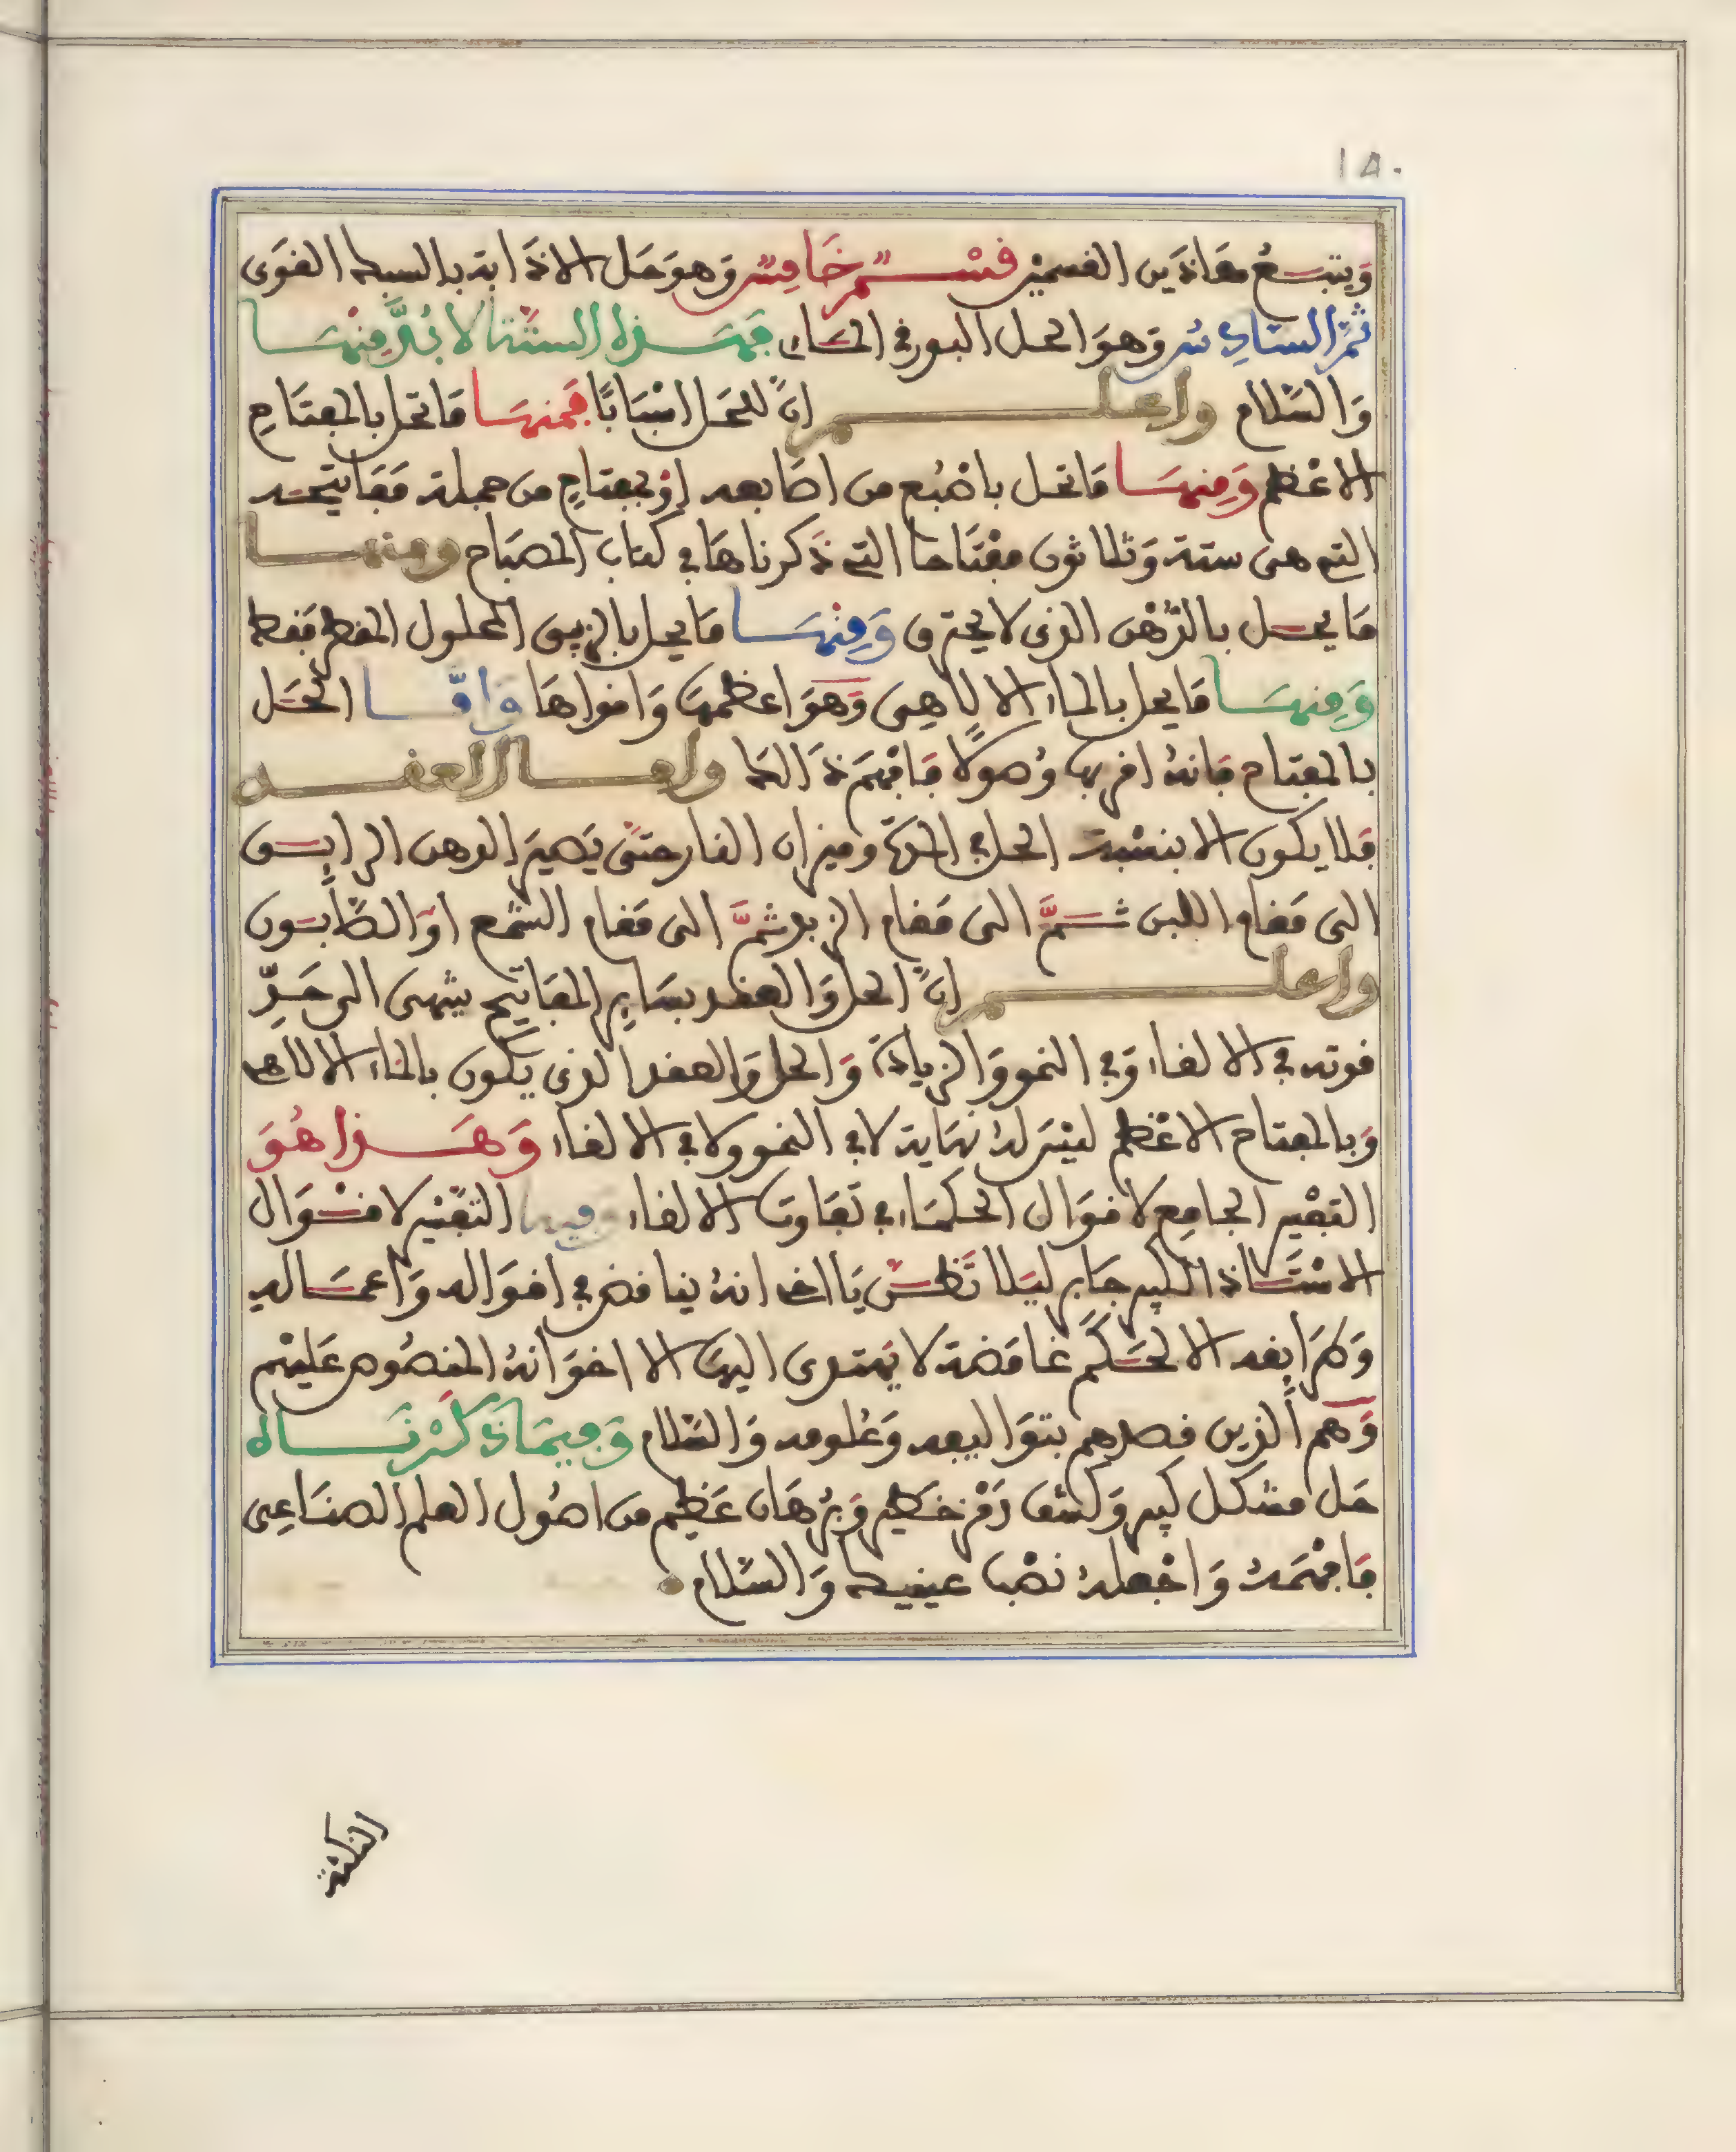 ١٥٠
وَيتبَعُ هَاذَين القسمَيْن قسْم خَامِس وَهوَ حَل الاذابة بالسبك القوى
ثمَّ السَّادِس وَهوَ الحل البورقى الحَاد فهَذه الستّة لا بُدَّ مِنْهَا
وَالسَّلام واعلم انَّ للحَل اسْبَابًا فمنهَا مَا تحل بالمفتَاحِ
الاعْظم وَمِنهَا مَا تحل باصْبُع من اصَابعه اوْ بمفتاحٍ من جملة مَفَاتيحه
التى هى ستة وَثلاثون مفْتَاحا التى ذَكرناهَا فى كتاب المصبَاح ومنها
مَا يحل بالدّهْن الذى لا يحترق وَمِنْهَا مَا يحل بالزيبق المحلول المقطر فقط
وَمِنهَا مَا يحل بالماء الالاهى وَهوَ اعظمهَا وَاقواها وَامَّا الحَل
بالمفتاح فانهُ اقربها وُصولًا فافْهَم ذَالكَ وامَا العقد
فلا يكون الا بنسْبة الحل فى المدّة وميزان النار حتىّ يَصيرَ الدهن الرايق
الى مَقام اللبن ثمَّ الى مَقام الزبد ثمَّ الى مَقام الشّمع اوْ الصَّابون
واعلم انَّ الحل وَالعقد بسَايِر المفَاتيح ينتهى الى حَدِّ
قوته فى الالقاء وَفى النمو وَالزيادَة وَالحل وَالعقد الذى يكون بالماء الالاهى
وَبالمفتاح الاعْظم ليْسَ لهُ نهَاية لا فى النمو ولا فى الالقاء وَهَذا هُوَ
التفْسير الجامِع لاقوَال الحكمَاء فى تفَاوت الالقاء وفيها التفْسير لاقْوَال
الاسْتَاذ الكبير جَابر ليَلا تَظنّ يَا اخى انهُ يناقض فى اقوَاله وَاعمَاله
وَكَم ابقد الا لحكَم غامَضة لا يَهتدى اليهَا الا اخوَانهُ المنصُوص عَليْهم
وَهم الذين قصدهم بتوَاليفه وَعُلومه وَالسَّلام وَفيمَا ذكَرْنَاه
حَل مشكل كبير وَكشف رَمْز خَطير وَبُرْهَان عَظيم من اصُول العلم الصنَاعِى
فافْهَمهُ وَاجْعلهُ نصْب عينيك وَالسَّلام
النكتة